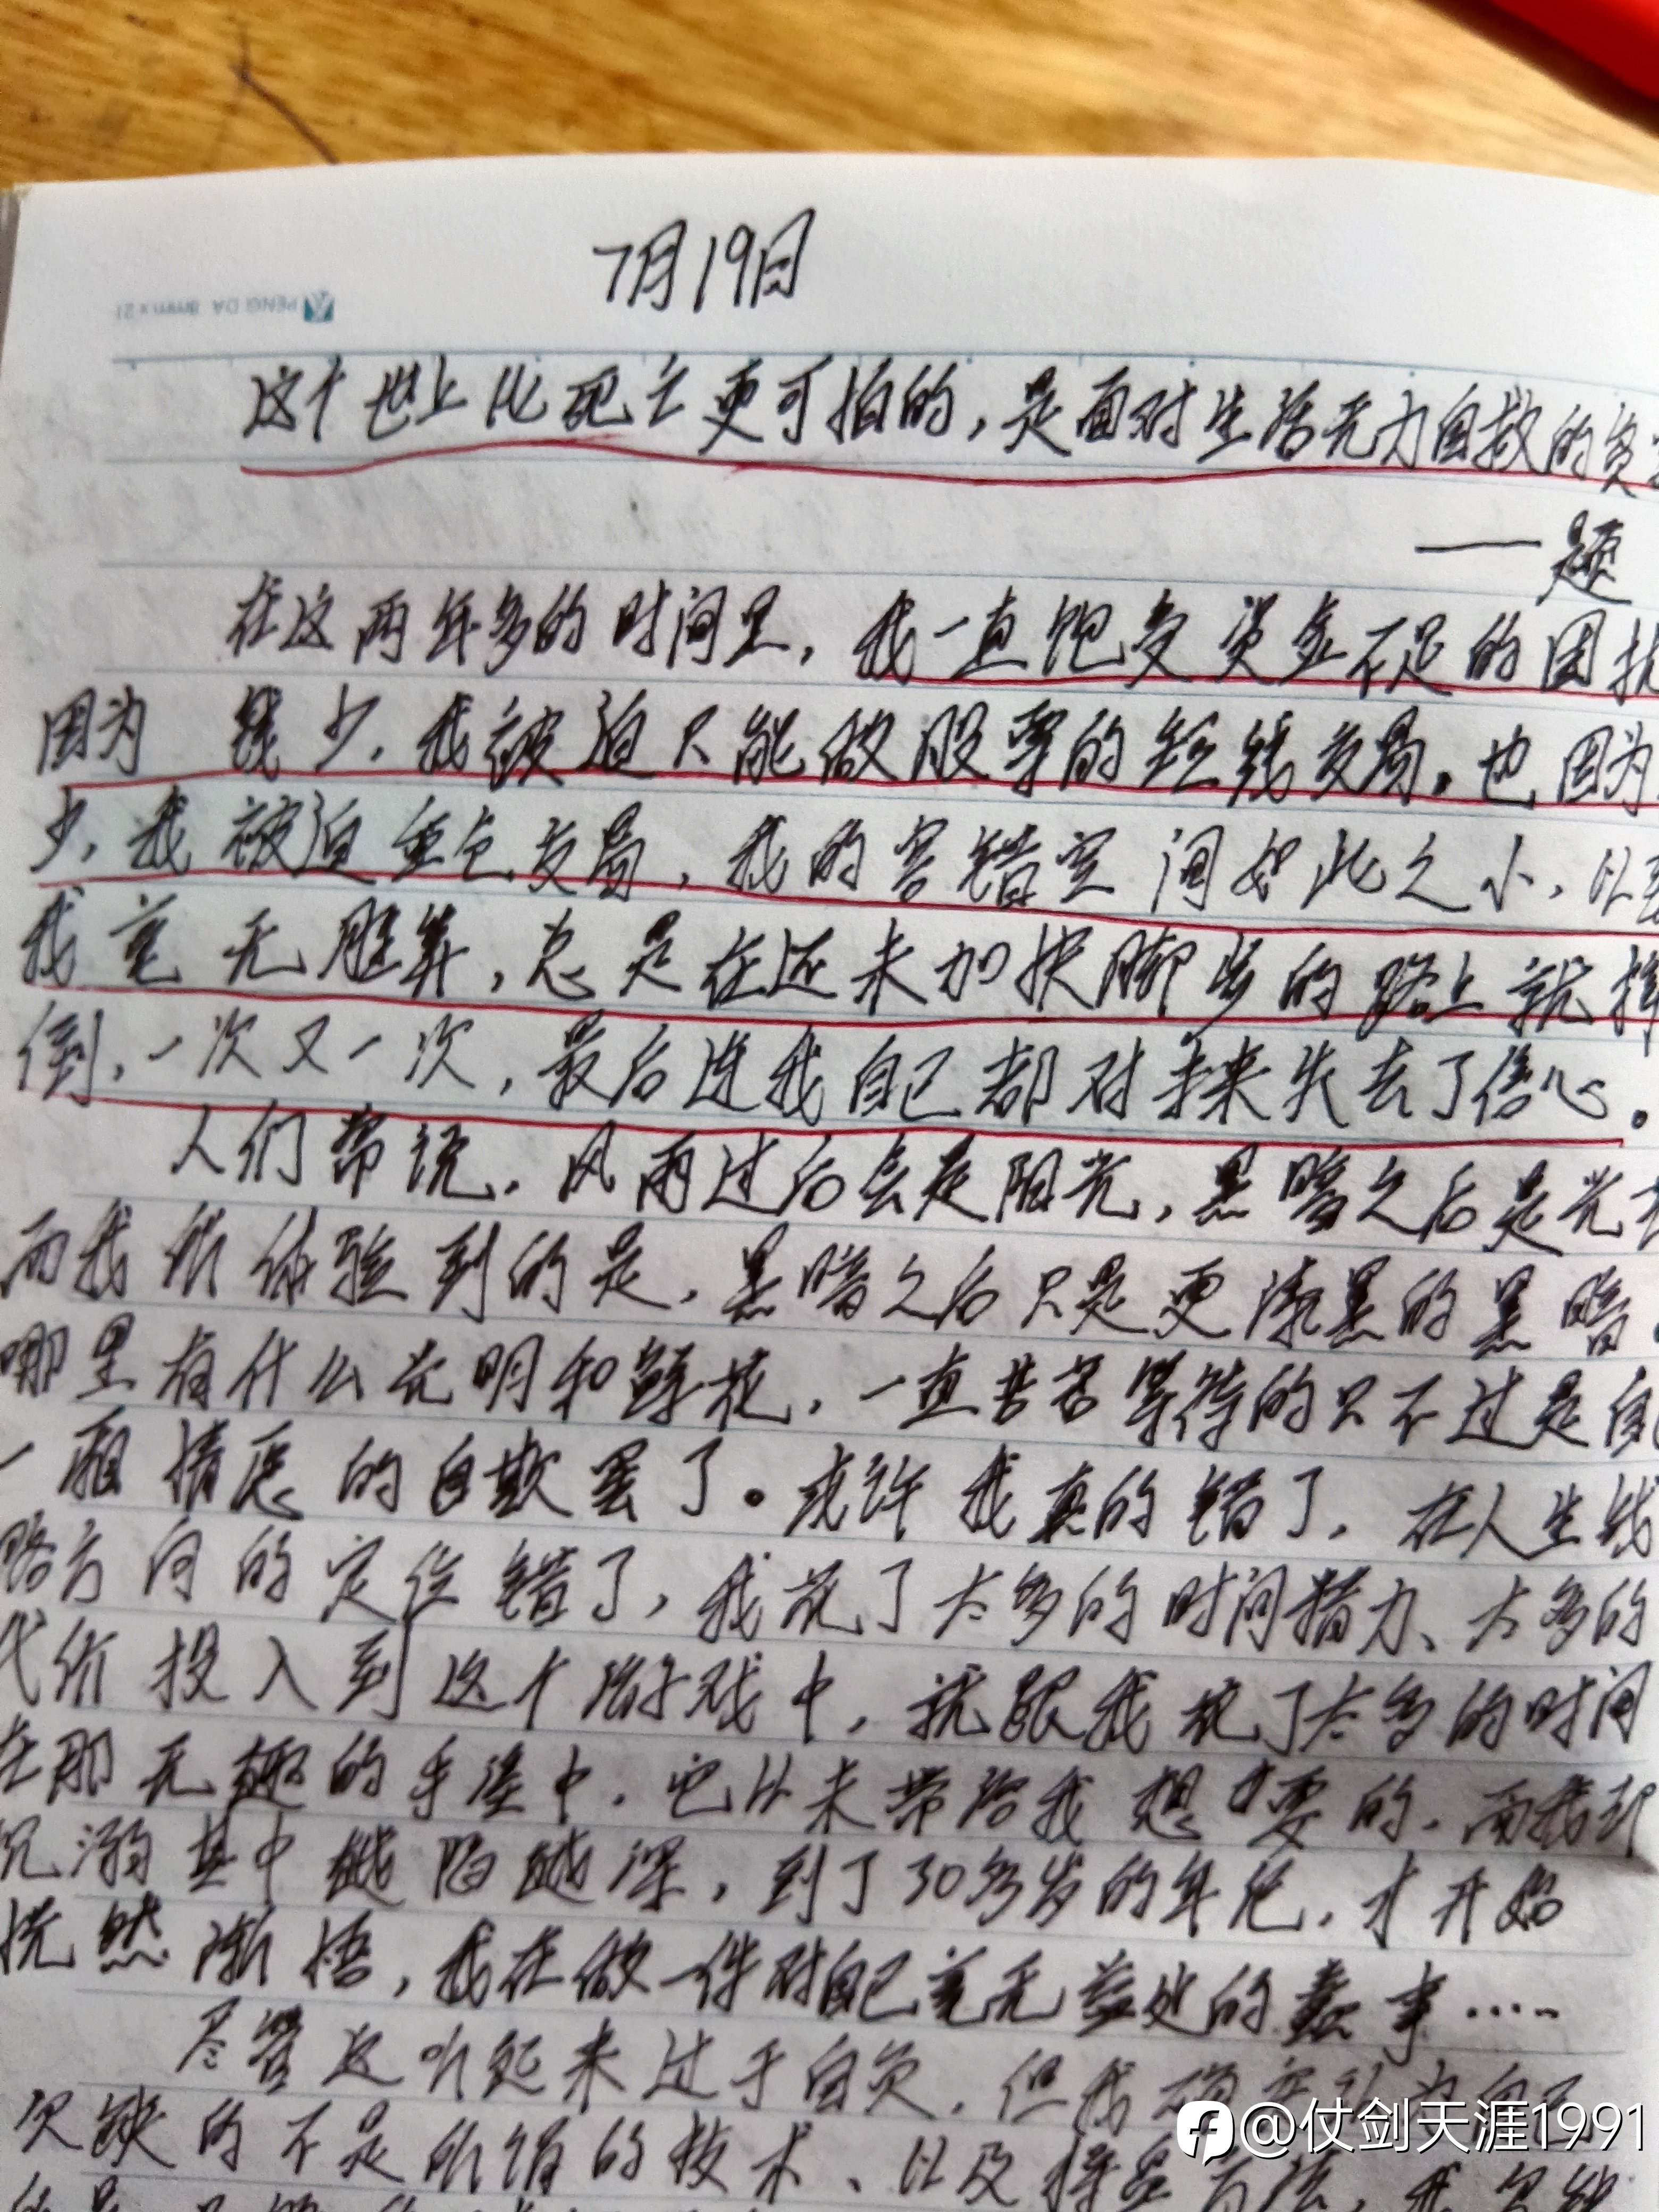 7月19日
PENG DA
这个世上比死亡更可怕的，是面对生活无力自救的负
——题
在这两年多的时间里，我一直饱受资金不足的困扰
因为 钱少，我被迫只能做股票的短线交易。也因为
少，我被迫重仓交易，我的容错空间如此之小，以至
我毫无胜算，总是在还未加快脚步的路上就摔
倒，一次又一次，最后连我自己都对未来失去了信心。
人们常说，风雨过后会是阳光，黑暗之后是光
而我所体验到的是，黑暗之后只是更漆黑的黑暗
哪里有什么光明和鲜花，一直苦苦等待的只不过是自
一厢情愿的自欺罢了。或许我真的错了，在人生战
略方向的定位错了，我花了太多的时间精力、太多的
代价投入到这个游戏中，就跟我花了太多的时间
在那无趣的手淫中，它从未带给我想要的，而我却
沉溺其中越陷越深，到了30多岁的年纪，才开始
恍然渐悟，我在做一件对自己毫无益处的蠢事……
尽管这听起来过于自负，但我
欠缺的不是所谓的技术、以及
@仗剑天涯1991